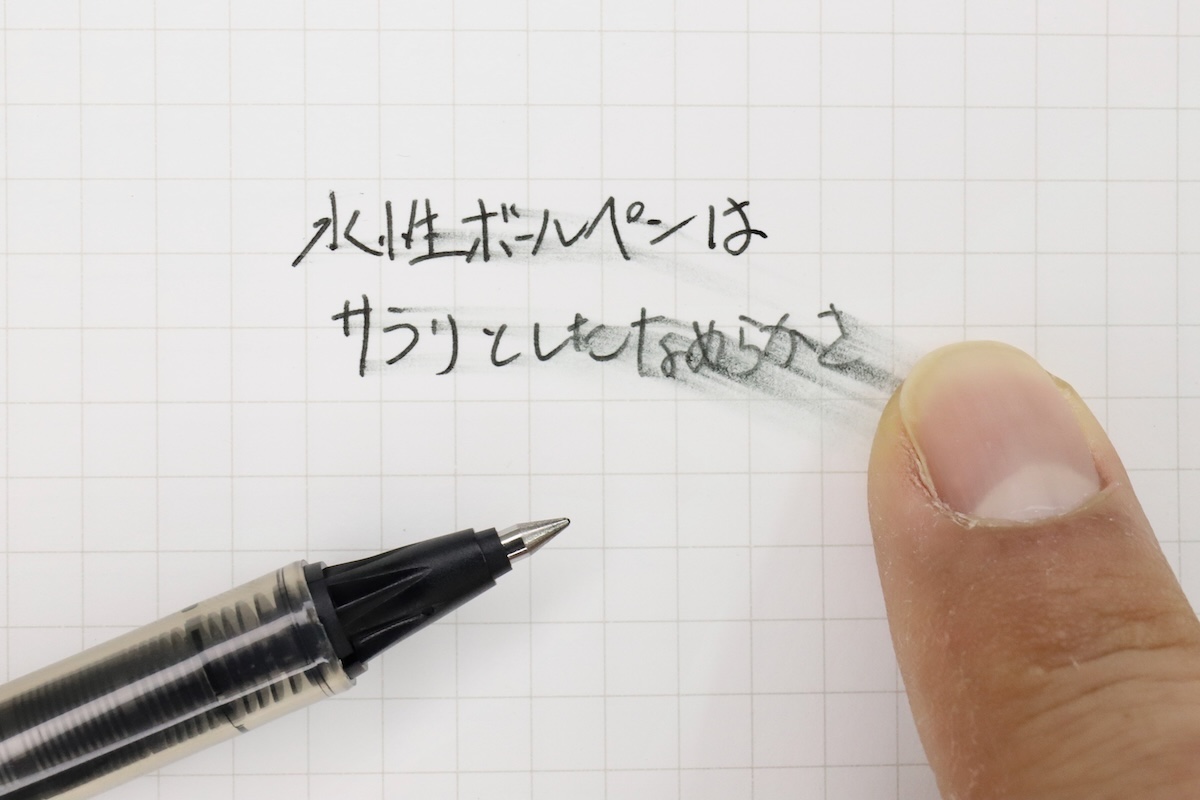 水性ボールペンは
サラリとしたなめらかさ